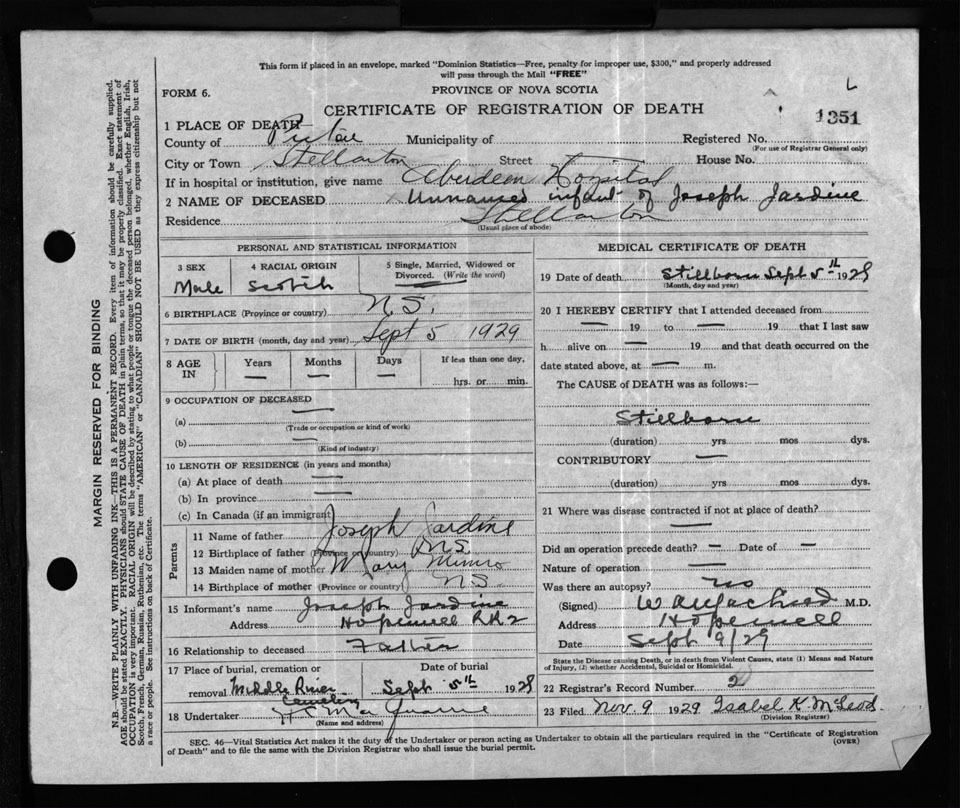 This form if placed in an envelope, marked "Dominion Statistics—Free, penalty for improper use, $300," and properly addressed
will pass through the Mail "FREE"
FORM 6.
PROVINCE OF NOVA SCOTIA
L
CERTIFICATE OF REGISTRATION OF DEATH
1351
1 PLACE OF DEATH
County of Pictou Municipality of Registered No.
(For use of Registrar General only)
City or Town Stellarton Street House No.
If in hospital or institution, give name Aberdeen Hospital
2 NAME OF DECEASED Unnamed infant of Joseph Jardine
Residence Stellarton
(Usual place of abode)
MARGIN RESERVED FOR BINDING
N.B.—WRITE PLAINLY WITH UNFADING INK—THIS IS A PERMANENT RECORD. Every item of information should be carefully supplied.
AGE should be stated EXACTLY. PHYSICIANS should STATE CAUSE OF DEATH in plain terms, so that it may be properly classified. Exact statement of
OCCUPATION is very important. RACIAL ORIGIN will be described by stating to what people or tongue the deceased person belonged, whether English, Irish,
Scotch, French, German, Russian, Ruthenian, etc. The terms "AMERICAN" or "CANADIAN" SHOULD NOT BE USED as they express citizenship but not
a race or people. See instructions on back of Certificate.
PERSONAL AND STATISTICAL INFORMATION
3 SEX 4 RACIAL ORIGIN 5 Single, Married, Widowed or
Divorced. (Write the word)
Male Scotch —
6 BIRTHPLACE (Province or country) N.S.
7 DATE OF BIRTH (month, day and year) Sept 5 1929
8 AGE IN Years Months Days If less than one day,
— — — hrs. or min.
9 OCCUPATION OF DECEASED
(a) —
(Trade or occupation or kind of work)
(b) —
(Kind of industry)
10 LENGTH OF RESIDENCE (in years and months)
(a) At place of death —
(b) In province —
(c) In Canada (if an immigrant)
Parents
11 Name of father Joseph Jardine
12 Birthplace of father (Province or country) N.S.
13 Maiden name of mother Mary Munro
14 Birthplace of mother (Province or country) N.S.
15 Informant's name Joseph Jardine
Address Hopewell R.R.2
16 Relationship to deceased Father
17 Place of burial, cremation or Date of burial
removal Middle River Cemetery Sept 5th 1929
18 Undertaker
(Name and address)
MEDICAL CERTIFICATE OF DEATH
19 Date of death Stillborn Sept 5th 1929
(Month, day and year)
20 I HEREBY CERTIFY that I attended deceased from
— 19 to — 19 that I last saw
h alive on — 19 and that death occurred on the
date stated above, at — m.
The CAUSE of DEATH was as follows:—
Stillborn
(duration) yrs mos dys.
CONTRIBUTORY —
(duration) yrs mos dys.
21 Where was disease contracted if not at place of death?
—
Did an operation precede death? — Date of —
Nature of operation —
Was there an autopsy? no
(Signed) M.D.
Address Hopewell
Date Sept 9/29
State the Disease causing Death, or in death from Violent Causes, state (1) Means and Nature
of Injury, (2) whether Accidental, Suicidal or Homicidal.
22 Registrar's Record Number
23 Filed Nov. 9 1929 Isabel K. McLeod.
(Division Registrar)
SEC. 46—Vital Statistics Act makes it the duty of the Undertaker or person acting as Undertaker to obtain all the particulars required in the "Certificate of Registration
of Death" and to file the same with the Division Registrar who shall issue the burial permit.
(OVER)